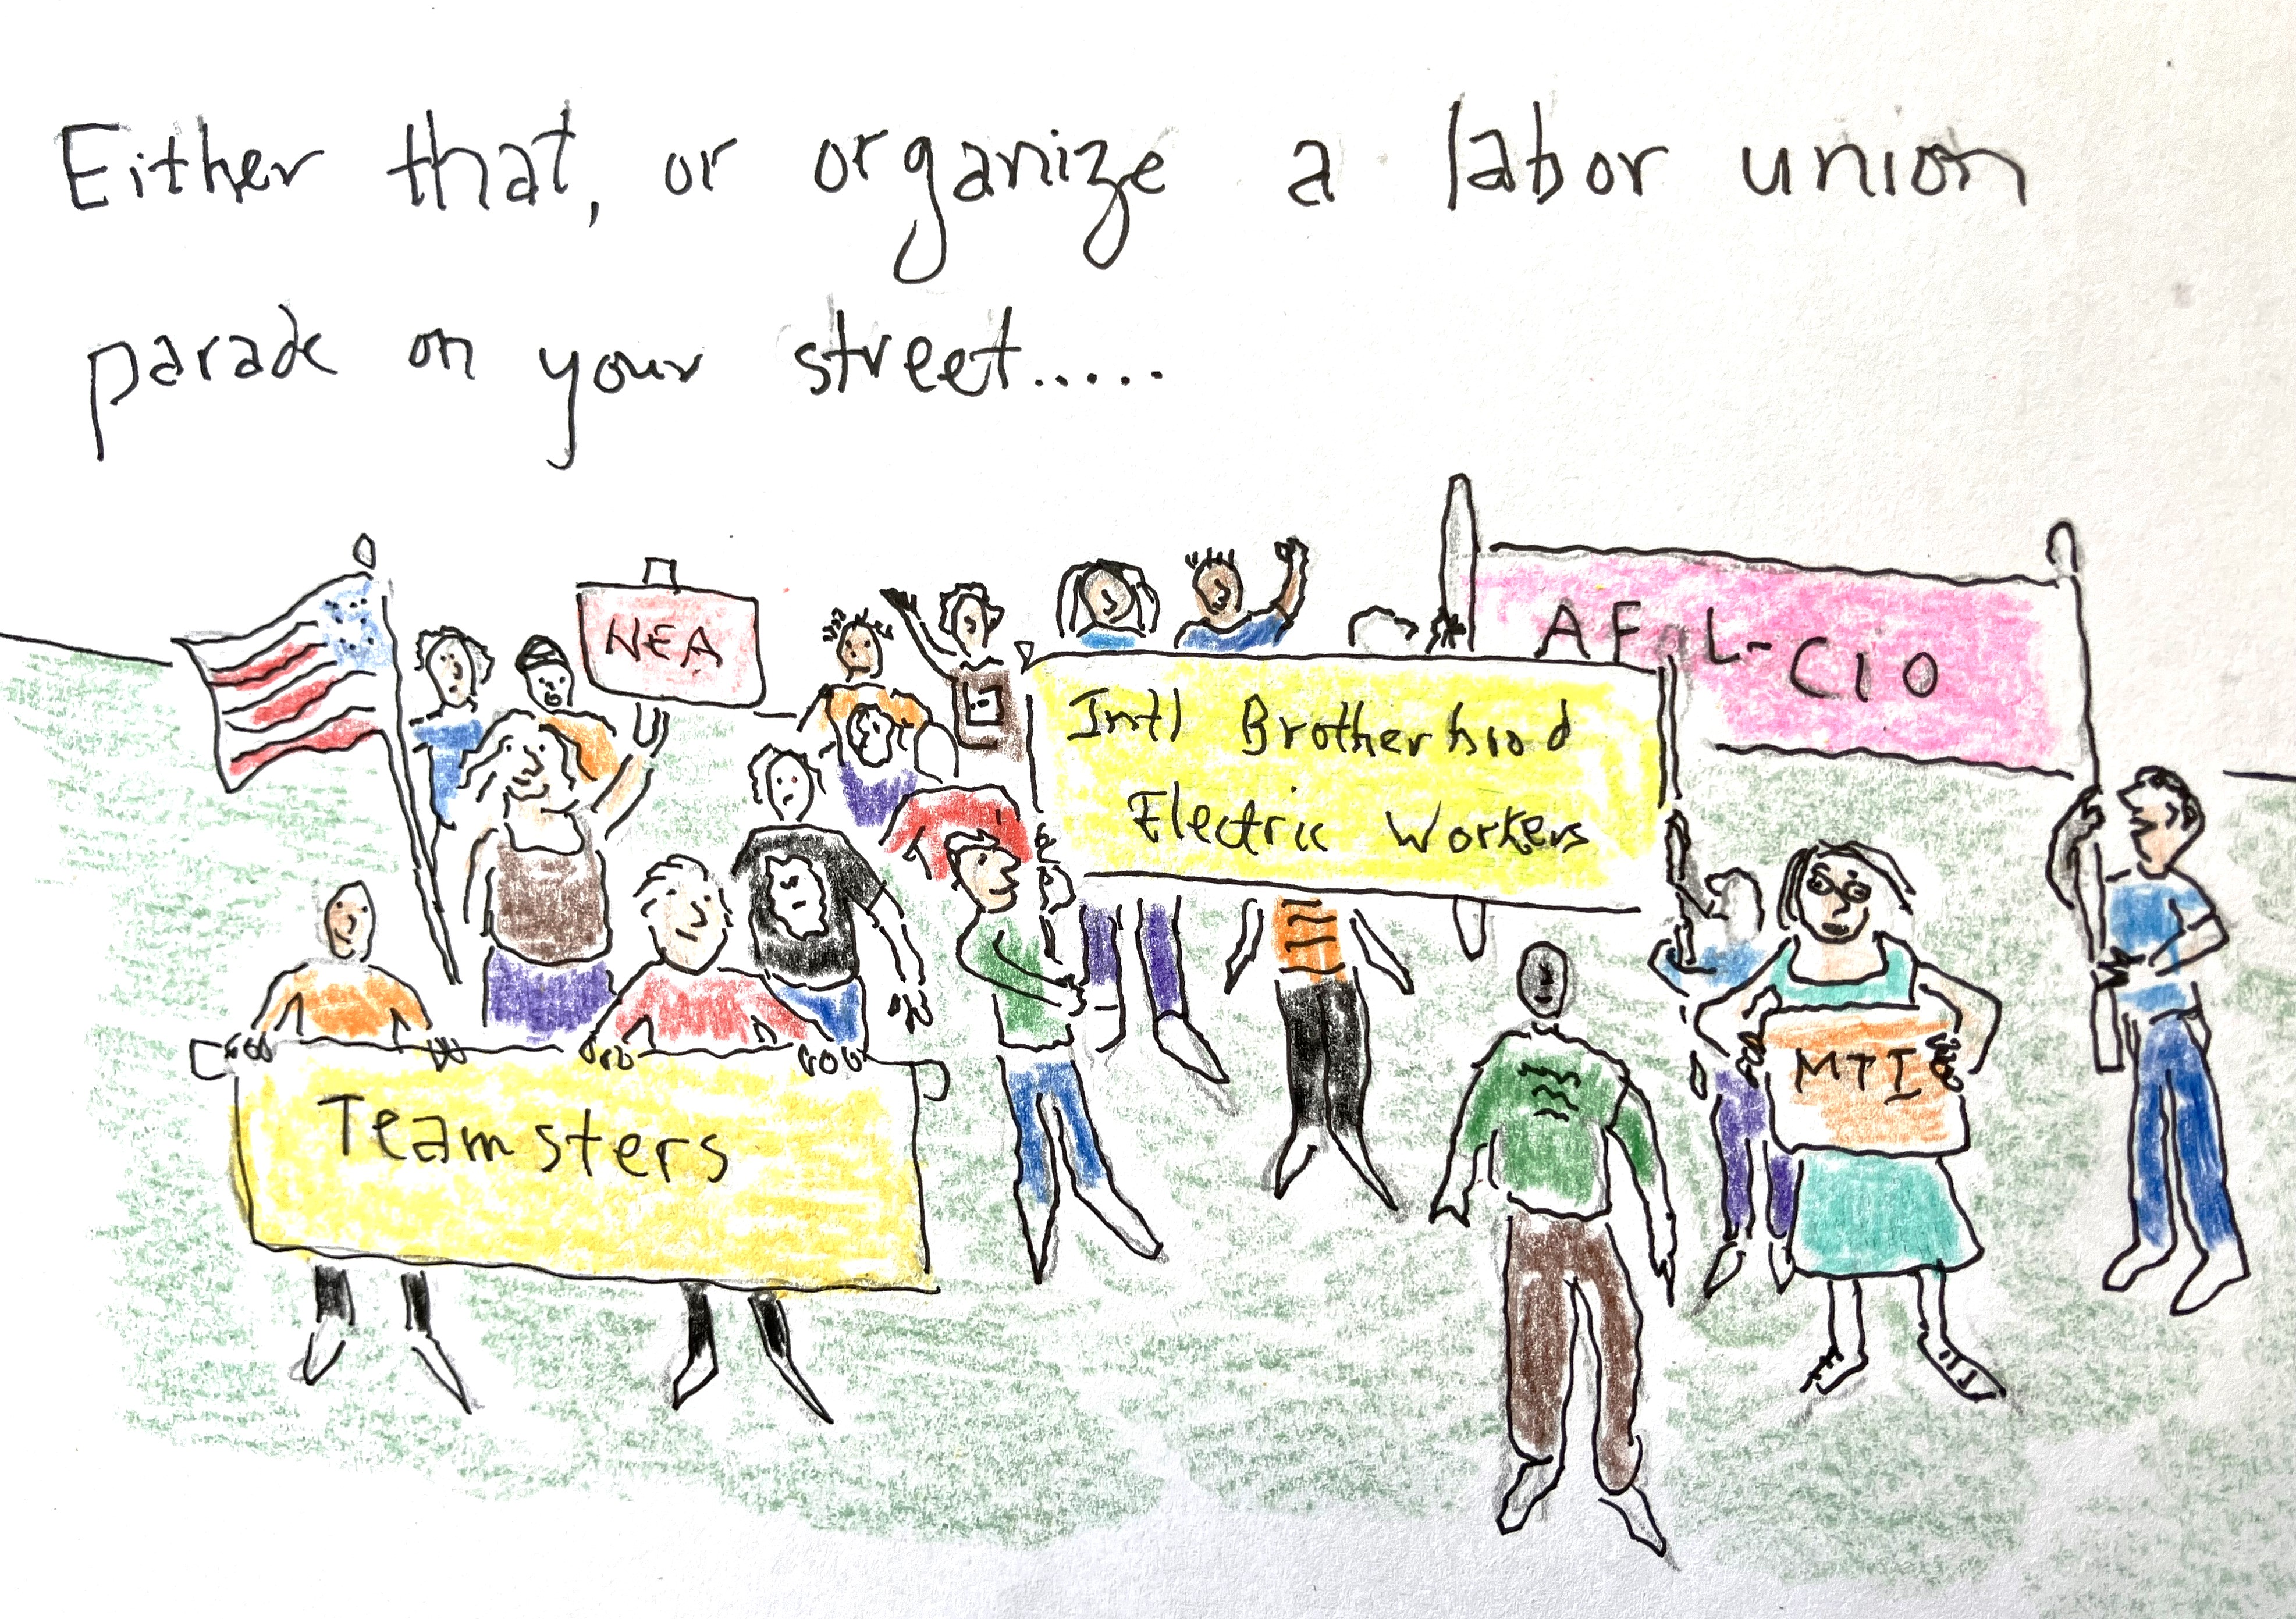 Either that, or organize a labor union
parade on your street.....
NEA
AFL-CIO
Intl Brotherhood
Electric Workers
Teamsters
MTI